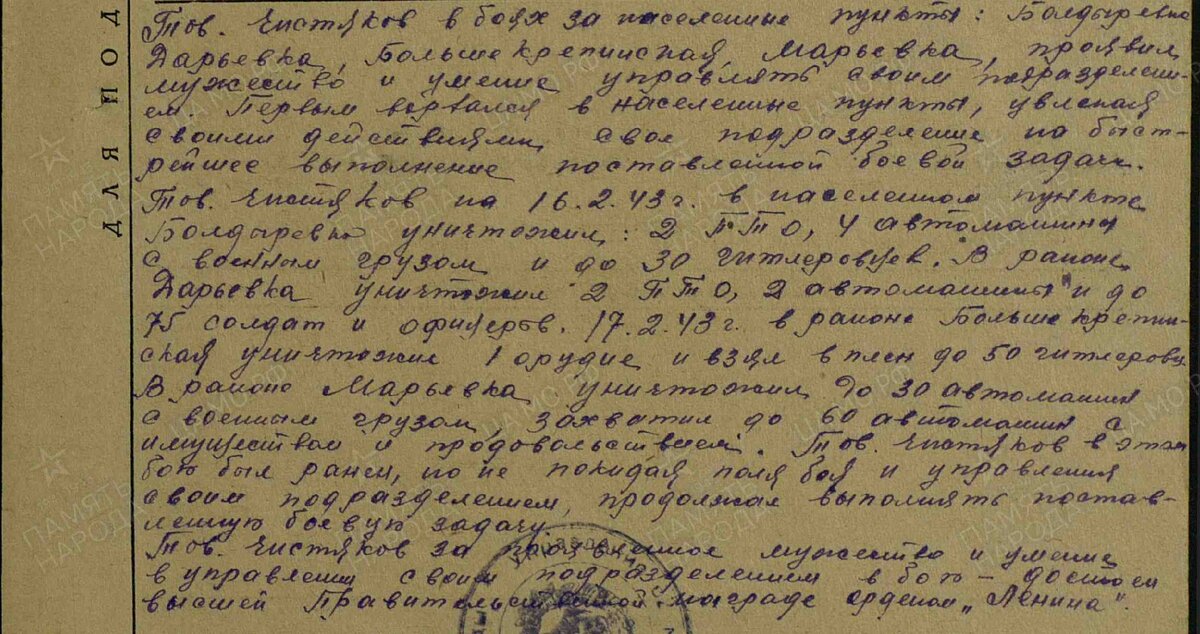 Тов. Чистяков в боях за населенные пункты: Болдыревка
Дарьевка, Больше крепинская, Марьевка, проявил
мужество и умение управлять своим подразделени-
ем. Первым ворвался в населенные пункты, увлекая
своими действиями свое подразделение на быст-
рейшее выполнение поставленной боевой задачи.
Тов. Чистяков на 16.2.43 г. в населенном пункте
Болдыревка уничтожил: 2 ПТО, 4 автомашины
с военным грузом и до 30 гитлеровцев. В районе
Дарьевка уничтожил 2 ПТО, 2 автомашины и до
75 солдат и офицеров. 17.2.43 г. в районе Больше крепин-
ская уничтожил 1 орудие и взял в плен до 50 гитлеровц
В районе Марьевка уничтожил до 30 автомашин
с военным грузом, захватил до 60 автомашин с
имуществом и продовольствием. Тов. Чистяков в этом
бою был ранен, но не покидая поля боя и управления
своим подразделением, продолжал выполнять постав-
ленную боевую задачу.
Тов. Чистяков за проявленное мужество и умение
в управлении своим подразделением в бою - достоен
высшей Правительственной награде орденом "Ленина".
ДЛЯ ПОД
ПАМЯТЬ НАРОДА
ЦАМО РФ